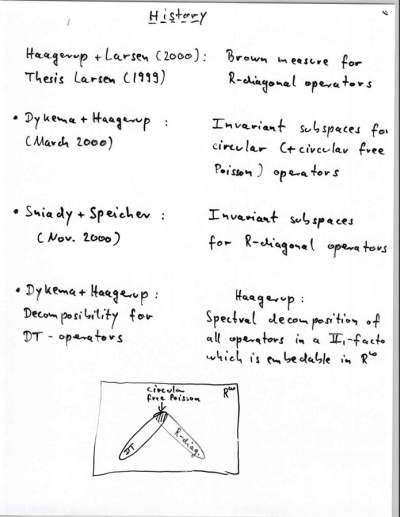 History
Haagerup + Larsen (2000): Brown measure for
Thesis Larsen (1999) R-diagonal operators
• Dykema + Haagerup : Invariant subspaces for
(March 2000) circular (+ circular free
Poisson) operators
• Sniady + Speicher : Invariant subspaces
(Nov. 2000) for R-diagonal operators
• Dykema + Haagerup : Haagerup :
Decomposibility for Spectral decomposition of
DT-operators all operators in a II₁-facto
which is embedable in R^ω
circular
free Poisson R^ω
DT R-diag.